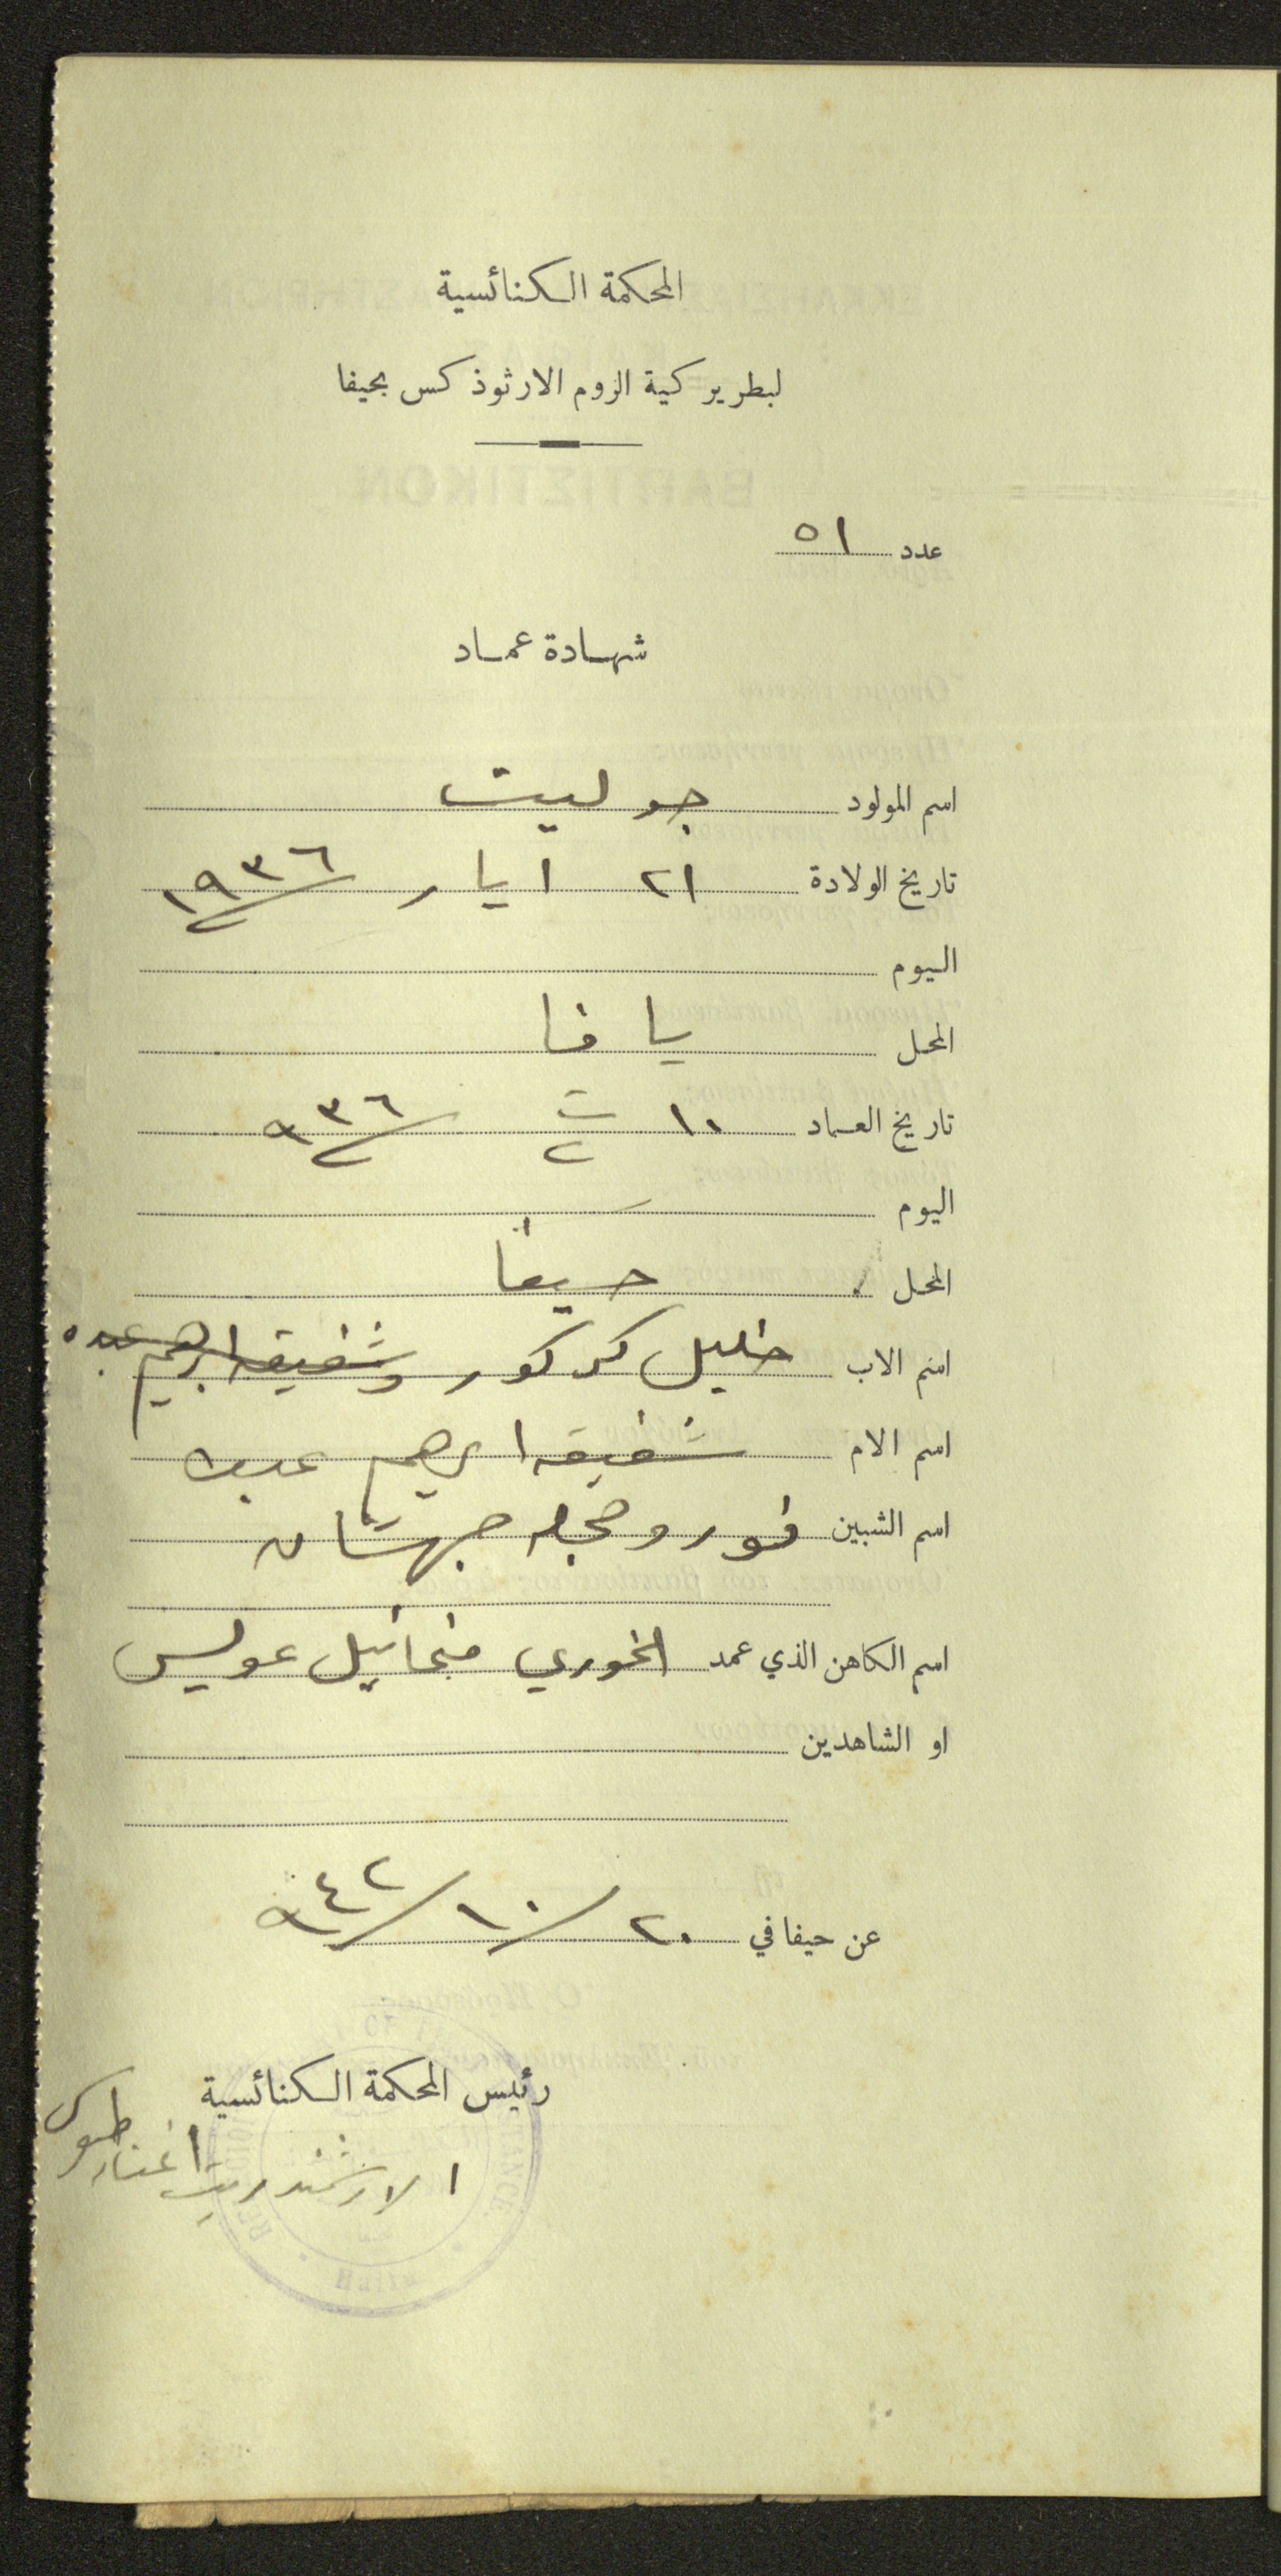 المحكمة الكنائسية
لبطريركية الروم الارثوذكس بحيفا
عدد ٥١
شهادة عماد
اسم المولود جوليت
تاريخ الولادة ٢١ ايار ١٩٣٦
اليوم
المحل يافا
تاريخ العماد ١٠ ت٢ ٩٣٦
اليوم
المحل حيفا
اسم الاب خليل كركور وشفيقه ابرهيم عبده
اسم الام شفيقه ابرهيم عبده
اسم الشبين
اسم الكاهن الذي عمد الخوري ميخائيل عويس
او الشاهدين
عن حيفا في ٢٠/١٠/٩٤٢
رئيس المحكمة الكنائسية
الارشمندريت اغناطيوس
Haifa